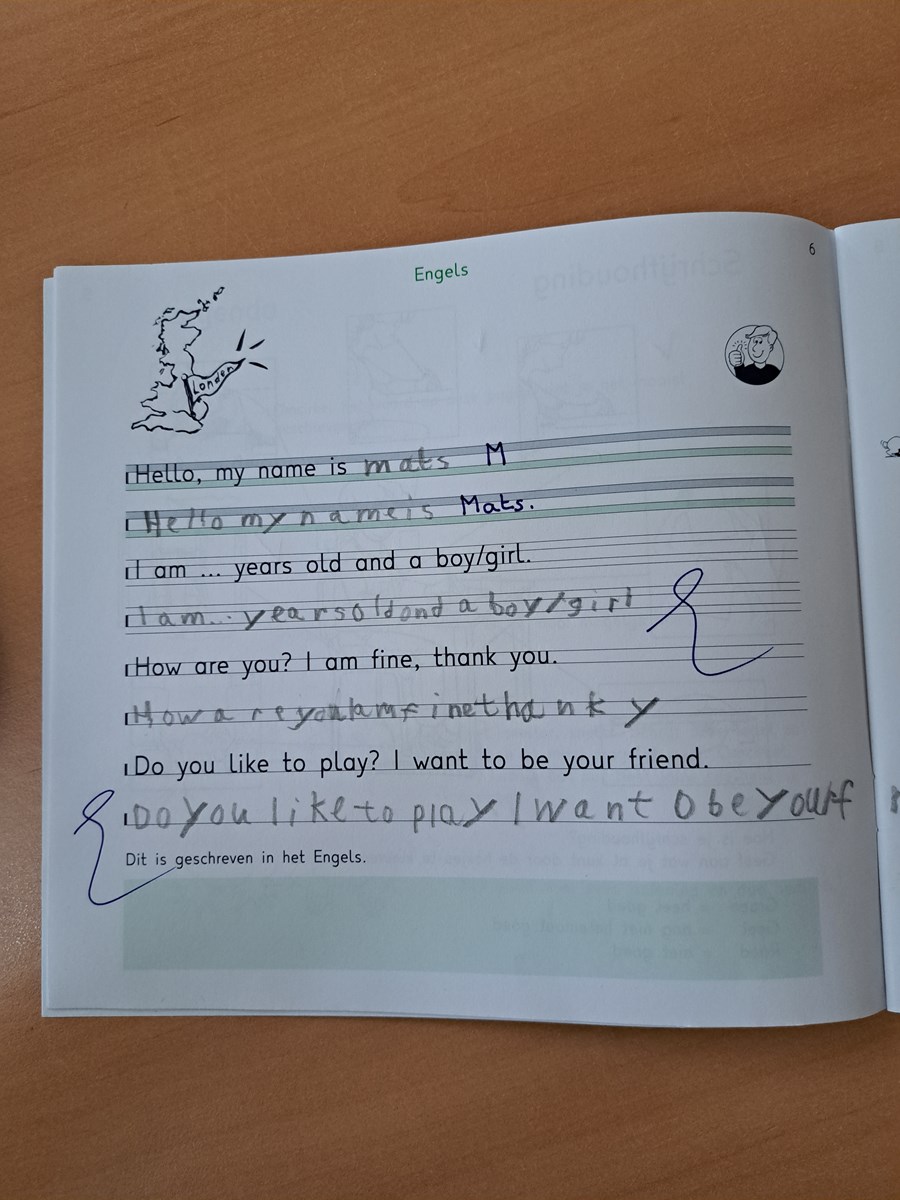 6
Engels
London
Hello, my name is mats M
Hello my name is Mats.
I am ... years old and a boy/girl.
I am... years old and a boy/girl
How are you? I am fine, thank you.
How are you I am fine thank y
Do you like to play? I want to be your friend.
Do you like to play I want o be your f
Dit is geschreven in het Engels.